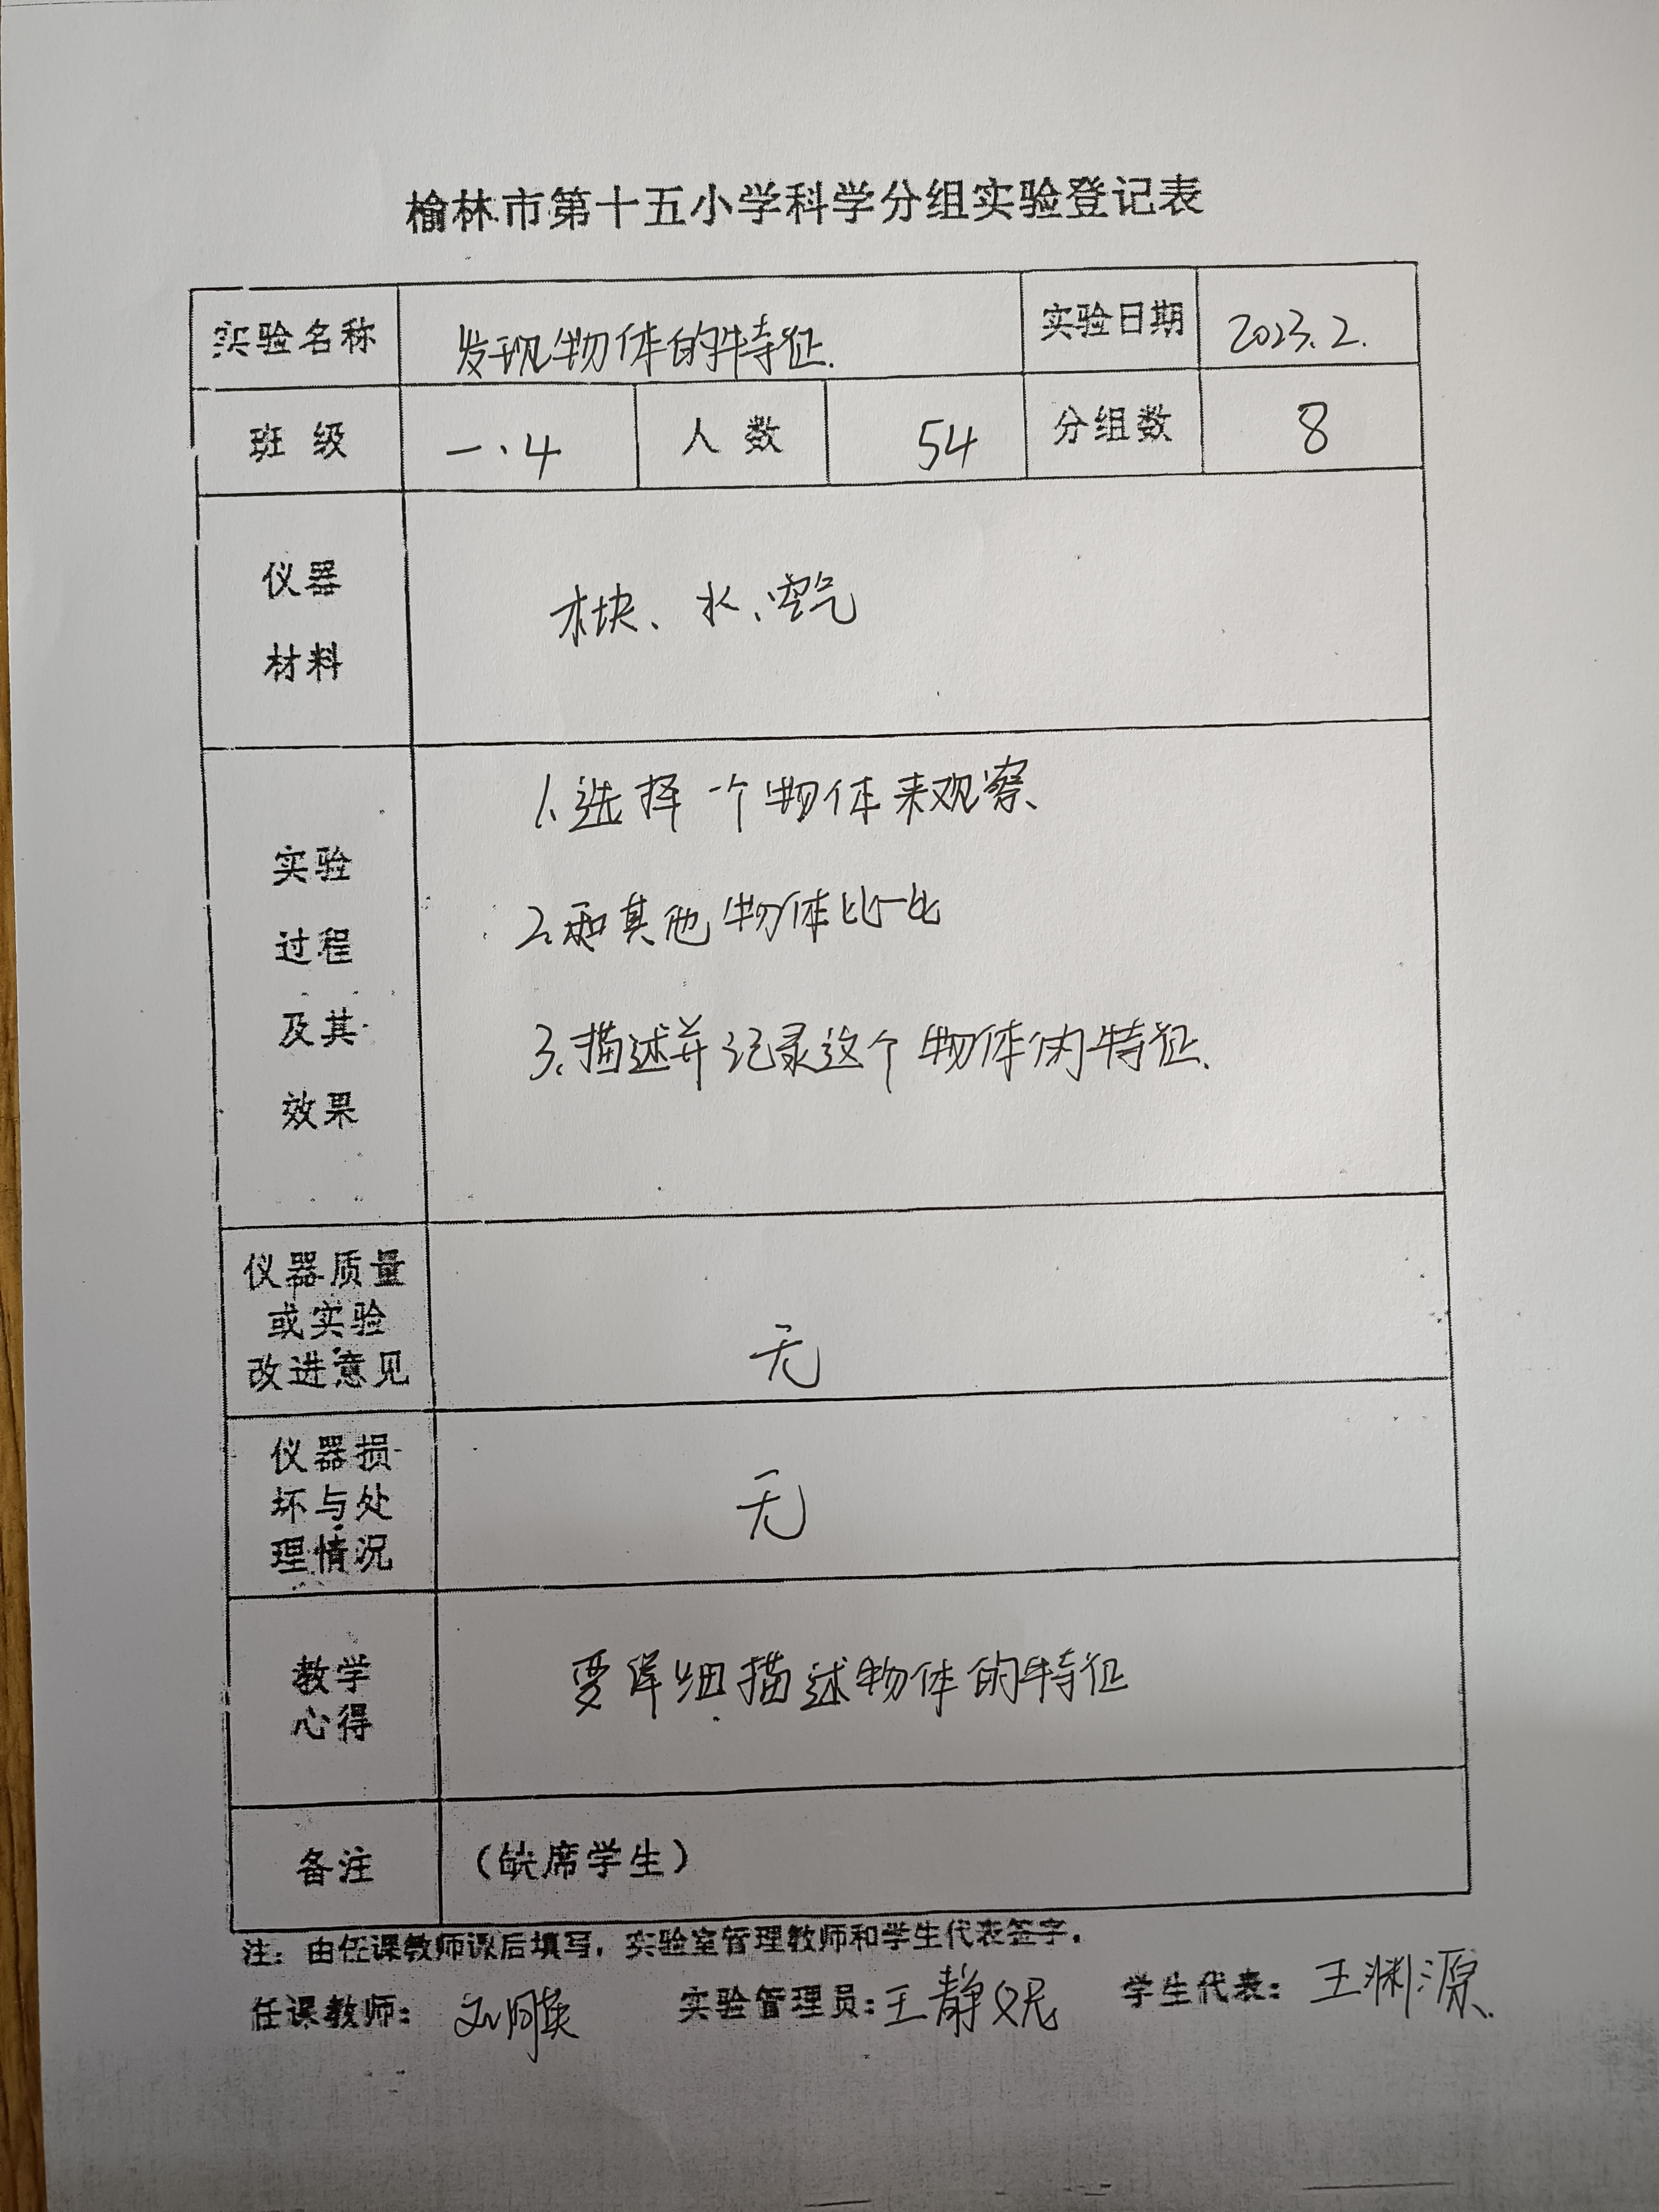 榆林市第十五小学科学分组实验登记表
实验名称 发现物体的特征. 实验日期 2023.2.
班级 一.4 人数 54 分组数 8
仪器
材料
木块、水、空气
1、选择一个物体来观察、
实验
2、和其他物体比一比
过程
及其
3、描述并记录这个物体的特征、
效果
仪器质量
或实验
改进意见
无
仪器损
坏与处
理情况
无
教学
心得
要详细描述物体的特征
备注 (缺席学生)
注：由任课教师课后填写，实验室管理教师和学生代表签字。
任课教师： 实验管理员：王静妮 学生代表：王渊源